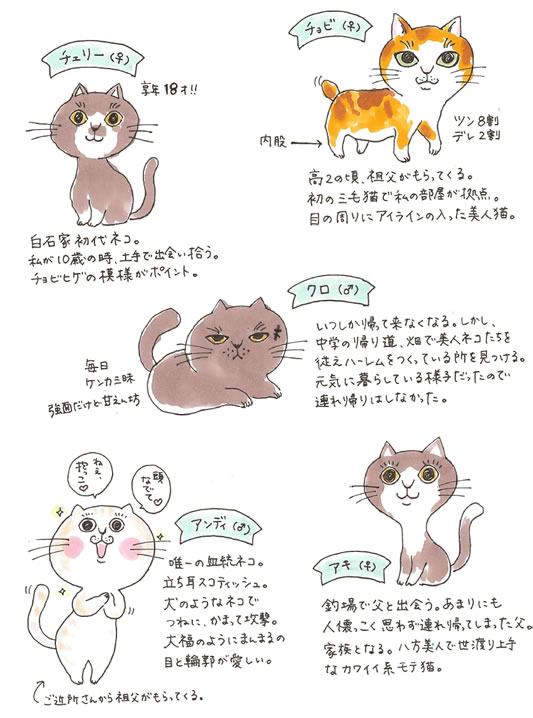 チェリー(♀)
享年18才!!
白石家初代ネコ。
私が10歳の時、土手で出会い拾う。
チョビヒゲの模様がポイント。
チョビ(♀)
ツン8割
デレ2割
内股
高2の頃、祖父がもらってくる。
初の三毛猫で私の部屋が拠点。
目の周りにアイラインの入った美人猫。
クロ(♂)
毎日
ケンカ三昧
強面だけど甘えん坊
いつしか帰って来なくなる。しかし、
中学の帰り道、畑で美人ネコたちを
従えハーレムをつくっている所を見つける。
元気に暮らしている様子だったので
連れ帰りはしなかった。
ねえ、
抱っこ♡
頭
なでて♡
アンディ(♂)
唯一の血統ネコ。
立ち耳スコティッシュ。
犬のようなネコで
つねに、かまって攻撃。
大福のようにまんまるの
目と輪郭が愛しい。
ご近所さんから祖父がもらってくる。
アキ(♀)
釣場で父と出会う。あまりにも
人懐っこく思わず連れ帰ってしまった父。
家族となる。八方美人で世渡り上手
なカワイイ系モテ猫。